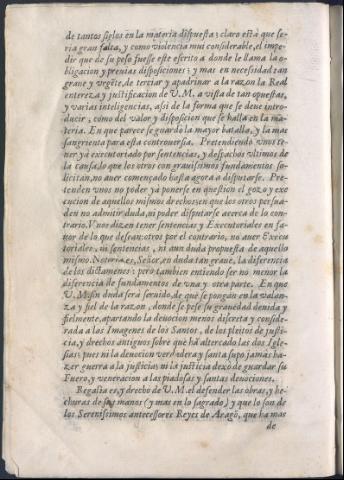 de tantos siglos en la materia dispuesta; claro està que se-
ria gran falta, y como violencia muy considerable, el impe-
dir que de su peso fuesse este escrito a donde le llama la o-
bligacion y preuias disposiciones; y mas en necessidad tan
graue y vrgẽte, de terciar y apadrinar a la razon la Real
entereza y justificacion de V. M. a vista de tan opuestas,
y varias inteligencias, assi de la forma que se deue intro-
ducir, como del valor y disposicion que se halla en la ma-
teria. En que parece se guarda la mayor batalla, y la mas
sangrienta para esta controuersia. Pretendiendo vnos te-
ner ya executoriado por sentencias, y despachos vltimos de
la causa, lo que los otros con grauissimos fundamentos so-
licitan, no auer començado hasta agora a disputarse. Pre-
tenden vnos no poder ya ponerse en question el gozo y exe
cucion de aquellos mismos drechos; en que los otros persua-
den no admitir duda, ni poder disputarse acerca de lo con-
trario. Vnos dizen tener sentencias y Executoriales en fa-
uor de lo que dessean: otros por el contrario, no auer Execu
toriales, ni sentencias, ni aun duda propuesta de aquello
mismo. Notoria es, Señor, en duda tan graue, la diferencia
de los dictamenes: pero tambien entiendo ser no menor la
diferencia de fundamentos de vna y otra parte. En que
V. M. sin duda serà seruido, de què se pongan en la valan-
za y fiel de la razon, donde se pese su grauedad deuida y
fielmente, apartando la deuocion menos discreta y conside-
rada a las Imagenes de los Santos, de los pleitos de justi-
cia, y drechos antiguos sobre què hà altercado las dos Igle-
sias: pues ni la deuocion verdadera y santa supo jamas ha-
zer guerra a la justicia; ni la justicia dexò de guardar su
Fuero, y veneracion a las piadosas y santas deuociones.
Regalia es, y drecho de V. M. el defender las obras, y he-
churas de sus manos (y mas en lo sagrado) y que lo son de
los Serenissimos antecessores Reyes de Aragõ, que ha mas
de